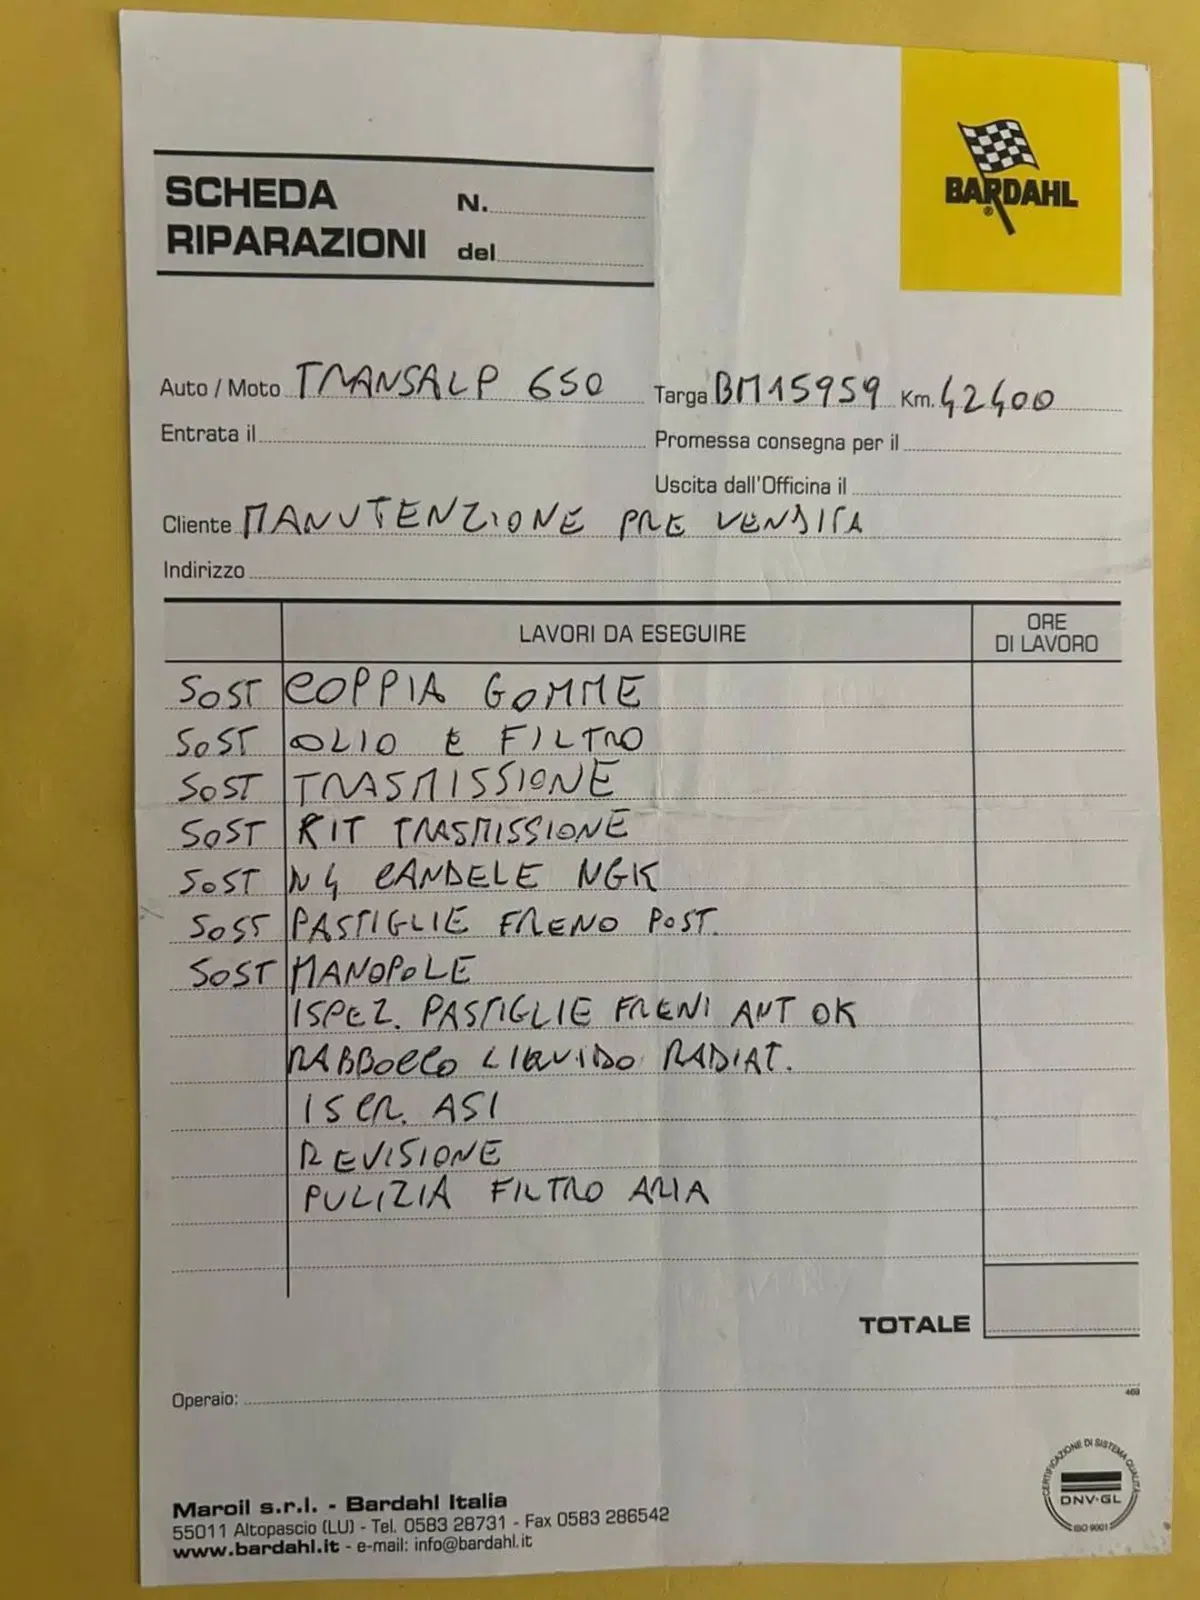 BARDAHL
SCHEDA N.
RIPARAZIONI del
Auto / Moto TRANSALP 650 Targa BM15959 Km. 42400
Entrata il Promessa consegna per il
Uscita dall'Officina il
Cliente MANUTENZIONE PRE VENDITA
Indirizzo
LAVORI DA ESEGUIRE ORE DI LAVORO
SOST COPPIA GOMME
SOST OLIO E FILTRO
SOST TRASMISSIONE
SOST KIT TRASMISSIONE
SOST N 4 CANDELE NGK
SOST PASTIGLIE FRENO POST.
SOST MANOPOLE
ISPEZ. PASTIGLIE FRENI ANT OK
RABBOCCO LIQUIDO RADIAT.
ISCR. ASI
REVISIONE
PULIZIA FILTRO ARIA
TOTALE
Operaio:
469
Maroil s.r.l. - Bardahl Italia
55011 Altopascio (LU) - Tel. 0583 28731 - Fax 0583 286542
www.bardahl.it - e-mail: info@bardahl.it
CERTIFICAZIONE DI SISTEMA QUALITÀ
DNV·GL
ISO 9001